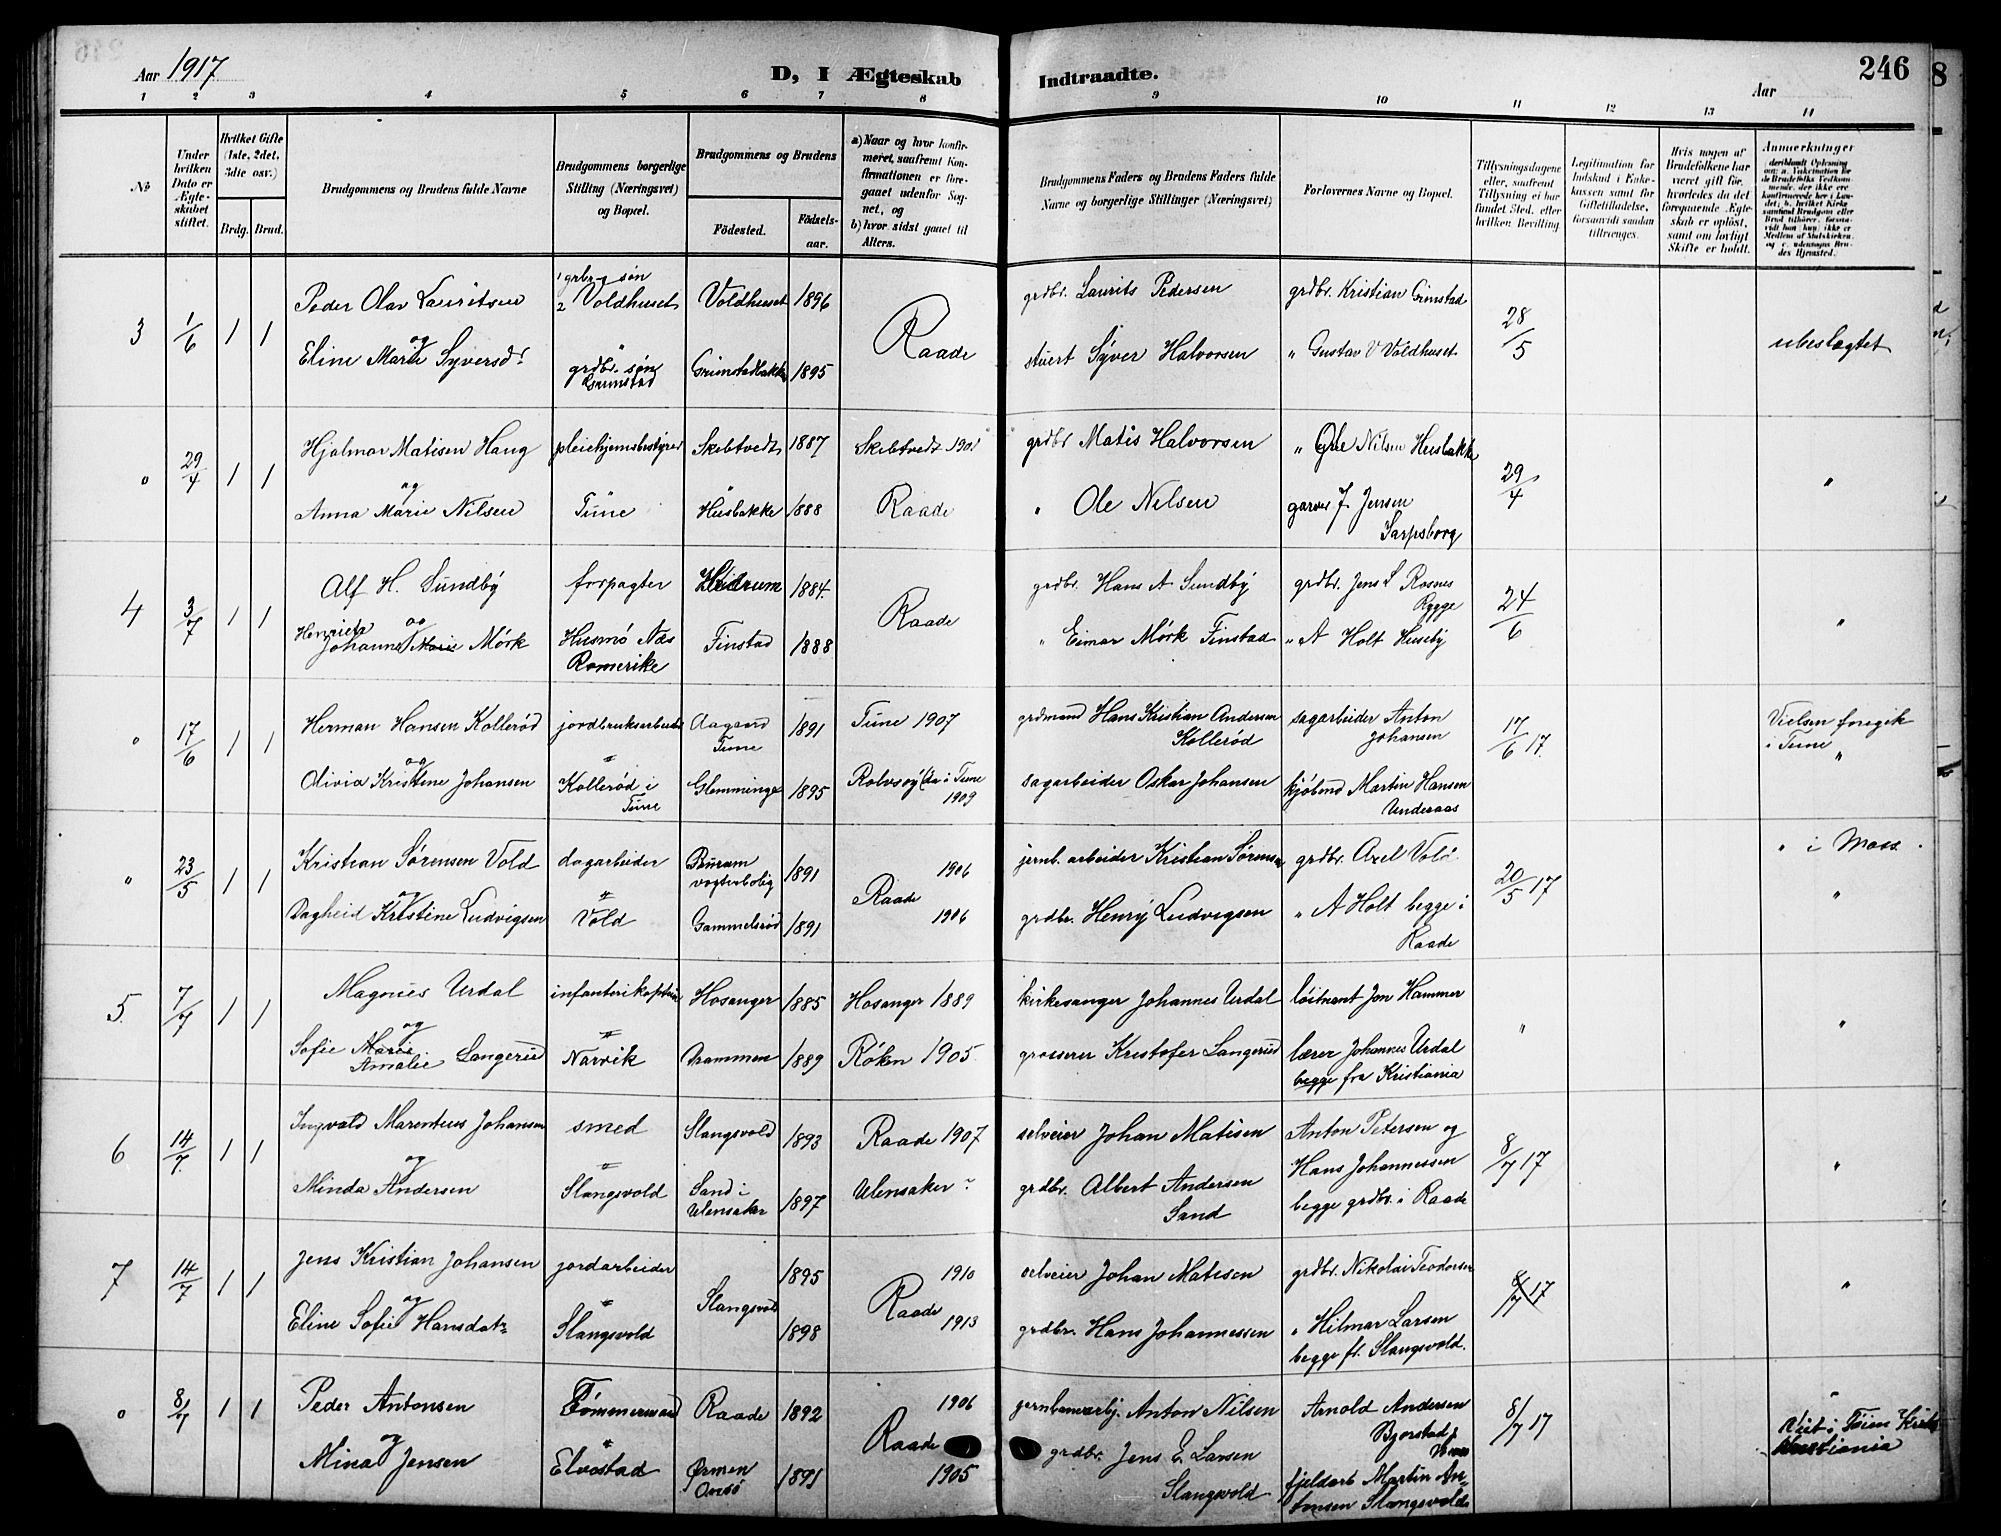 Aar 1917
D, I Ægteskab Indtraadte.
Aar
246
1 2 3 4 5 6 7 8 9 10 11 12 13 14
No
Under hvilken Dato er Ægteskabet stiftet.
Hvilket Gifte (1ste, 2det, 3dte osv.)
Brdg. Brud.
Brudgommens og Brudens fulde Navne
Brudgommens borgerlige Stilling (Næringsvei) og Bopæl.
Brudgommens og Brudens
Fødested.
Fødselsaar.
a) Naar og hvor konfirmeret, saafremt Konfirmationen er foregaaet udenfor Sognet, og
b) hvor sidst gaaet til Alters.
Brudgommens Faders og Brudens Faders fulde Navne og borgerlige Stillinger (Næringsvei)
Forlovernes Navne og Bopæl.
Tillysningsdagene eller, saafremt Tillysning ei har fundet Sted, efter hvilken Bevilling
Legitimation for Indskud i Enkekassen samt for Giftetilladelse, forsaavidt saadan tiltrænges.
Hvis nogen af Brudefolkene har været gift før, hvorledes da det foregaaende Ægteskab er opløst, samt om lovligt Skifte er holdt.
Anmerkninger
3 1/6 1 1
Peder Olav Lauritsen
og
Eline Marie Syversd.
grbr. søn
Voldhuset
grdbr. søn
Grimstad
Voldhuset 1896
Grimstadbakke 1895
Raade
grdbr. Laurits Pedersen
stuert Syver Halvorsen
grdbr. Kristian Grimstad
" Gustav V Voldhuset
28/5
ubeslegtet
" 29/4 1 1
Hjalmar Matisen Haug
og
Anna Marie Nilsen
pleiehjemsbestyrer
Tune
Skebtvedt 1887
Husbakke 1888
Skebtvedt 1901
Raade
grdbr Matis Halvorsen
" Ole Nilsen
" Ole Nilsen Husbakke
garver J. Jensen
Sarpsborg
29/4
"
4 3/7 1 1
Alf H. Sundby
og
Henriette
Johanne Marie Mørk
forpagter
Husmo Næs
Romerike
Hedrum 1884
Finstad 1888
Raade
grdbr. Hans A Sundby
" Eimar Mørk Finstad
grdbr. Jens L Rosnes
Rygge
" A Holt Huseby
24/6
"
" 17/6 1 1
Herman Hansen Kollerød
og
Olivia Kristine Johansen
jordbruksarbeider
Kollerød i
Tune
Aagaard
Tune 1891
Glemminge 1895
Tune 1907
Rolvsøy (da i Tune
1909
grdmand Hans Kristian Andersen
Kollerød
sagarbeider Oskar Johansen
sagarbeider Anton
Johansen
kjøbmd Martin Hansen
Underaas
17/6 17.
Vielsen foregik
i Tune
"
" 23/5 1 1
Kristian Sørensen Vold
og
Dagheid Kristine Ludvigsen
dagarbeider
Vold
vogterbolig 1891
Gammelsrød 1891
1906
Raade
1906
jernb. arbeider Kristian Sørensen
grdbr. Henry Ludvigsen
grdbr. Axel Vold.
" A Holt begge i
Raade
20/5 17
" i Moss.
"
5. 7/7 1 1
Magnus Urdal
og
Sofie Marie
Amalie Langerud
infanterikaptein
Narvik
Hosanger 1885
Drammen 1889
Hosanger 1889
Røken 1905
kirkesanger Johannes Urdal
grosserer Kristofer Langerud
løitnant Jon Hammer
lærer Johannes Urdal
begge fra Kristiania
"
"
6 14/7 1 1
Ingvald Marentius Johansen
og
Minda Andersen
smed
Slangsvold
Slangsvold 1893
Sand i
Ulensaker 1897
Raade 1907
Ulensaker ?
selveier Johan Matisen
grdbr. Albert Andersen
Sand
Anton Petersen og
Hans Johannessen
begge grdbr. i Raade
8/7 17
"
7 14/7 1 1
Jens Kristian Johansen
og
Eline Sofie Hansdatr
jordarbeider
Slangsvold
Slangsvold 1895
1898
1910
Raade
1913
selveier Johan Matisen
grdbr. Hans Johannessen
grdbr. Nikolai Teodorsen
" Hilmar Larsen
begge fr. Slangsvold.
8/7 17
"
" 8/7 1 1
Peder Antonsen
og
Mina Jensen
Tømmermand
Elvestad
Raade 1892
Ørmen
Onsø 1891
1906
Raade
1905
Anton Nilsen
grdbr. Jens E. Larsen
Slangsvold
Arnold Andersen
fjeldarb Martin Antonsen Slangsvold
8/7 17
"
Viet i Tøien Kirke
Kristiania